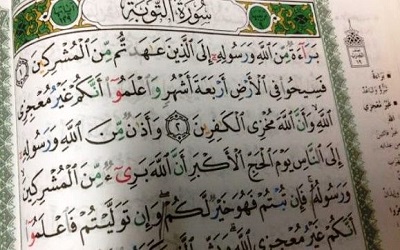 سُورَةُ التَّوْبَةِ
بَرَآءَةٌ مِّنَ ٱللَّهِ وَرَسُولِهِۦٓ إِلَى ٱلَّذِينَ عَٰهَدتُّم مِّنَ ٱلْمُشْرِكِينَ ١
فَسِيحُوا۟ فِى ٱلْأَرْضِ أَرْبَعَةَ أَشْهُرٍ وَٱعْلَمُوٓا۟ أَنَّكُمْ غَيْرُ مُعْجِزِى
ٱللَّهِ وَأَنَّ ٱللَّهَ مُخْزِى ٱلْكَٰفِرِينَ ٢ وَأَذَٰنٌ مِّنَ ٱللَّهِ وَرَسُولِهِۦٓ
إِلَى ٱلنَّاسِ يَوْمَ ٱلْحَجِّ ٱلْأَكْبَرِ أَنَّ ٱللَّهَ بَرِىٓءٌ مِّنَ ٱلْمُشْرِكِينَ
وَرَسُولُهُۥ فَإِن تُبْتُمْ فَهُوَ خَيْرٌ لَّكُمْ وَإِن تَوَلَّيْتُمْ فَٱعْلَمُوٓا۟
أَنَّكُمْ غَيْرُ مُعْجِزِى ٱللَّهِ